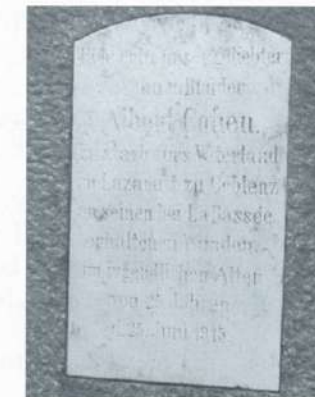 Hier ruht unser geliebter
Albert Cahen.
starb für's Vaterland
im Lazarett zu Coblenz
an seinen bei La Bassée
erhaltenen Wunden,
im jugendlichen Alter
von 25 Jahren
d. 25. Juni 1915